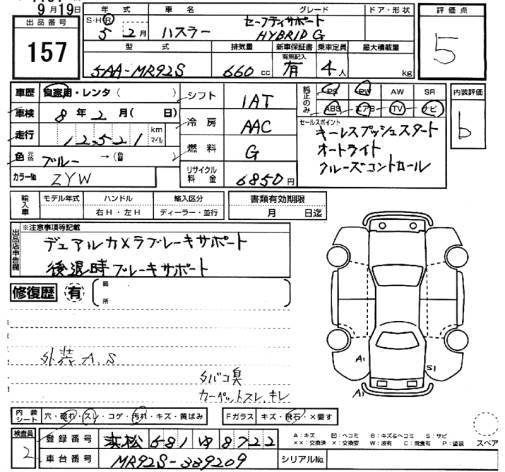 9月19日
出品番号
157
S・H・R 年 月
5年 2月
車名
ハスラー
グレード
セーフティサポート
HYBRID G
ドア・形状
評価点
5
型式
5AA-MR92S
排気量
660 cc
新車保証書
有無記入
有
乗車定員
4人
最大積載量
kg
車歴 自家用・レンタ( )
車検 8年2月( 日)
走行 12,521 km マイル
色 ブルー
カラーNo. ZYW
シフト 1AT
冷房 AAC
燃料 G
リサイクル料金 6850円
純正のみ
PS PW AW SR
ABS エアB TV ナビ
内装評価
b
セールスポイント
キーレスプッシュスタート
オートライト
クルーズコントロール
輸入車
モデル年式
ハンドル
右H・左H
輸入区分
ディーラー・並行
書類有効期限
月 日迄
出品店申告欄
※注意事項等記載
デュアルカメラブレーキサポート
後退時ブレーキサポート
修復歴 有
箇所
外装 A,S
タバコ臭
カーペットスレ,キレ
A1
S1
A1
内装シート
穴・破れ・スレ・コゲ・汚れ・キズ・黄ばみ
Fガラス キズ・飛石・×要す
スペア
検査員
2
登録番号 浜松 581
車台番号 MR92S-339209
シリアルNo.
A:キズ
B:キズ&ヘコミ S:サビ